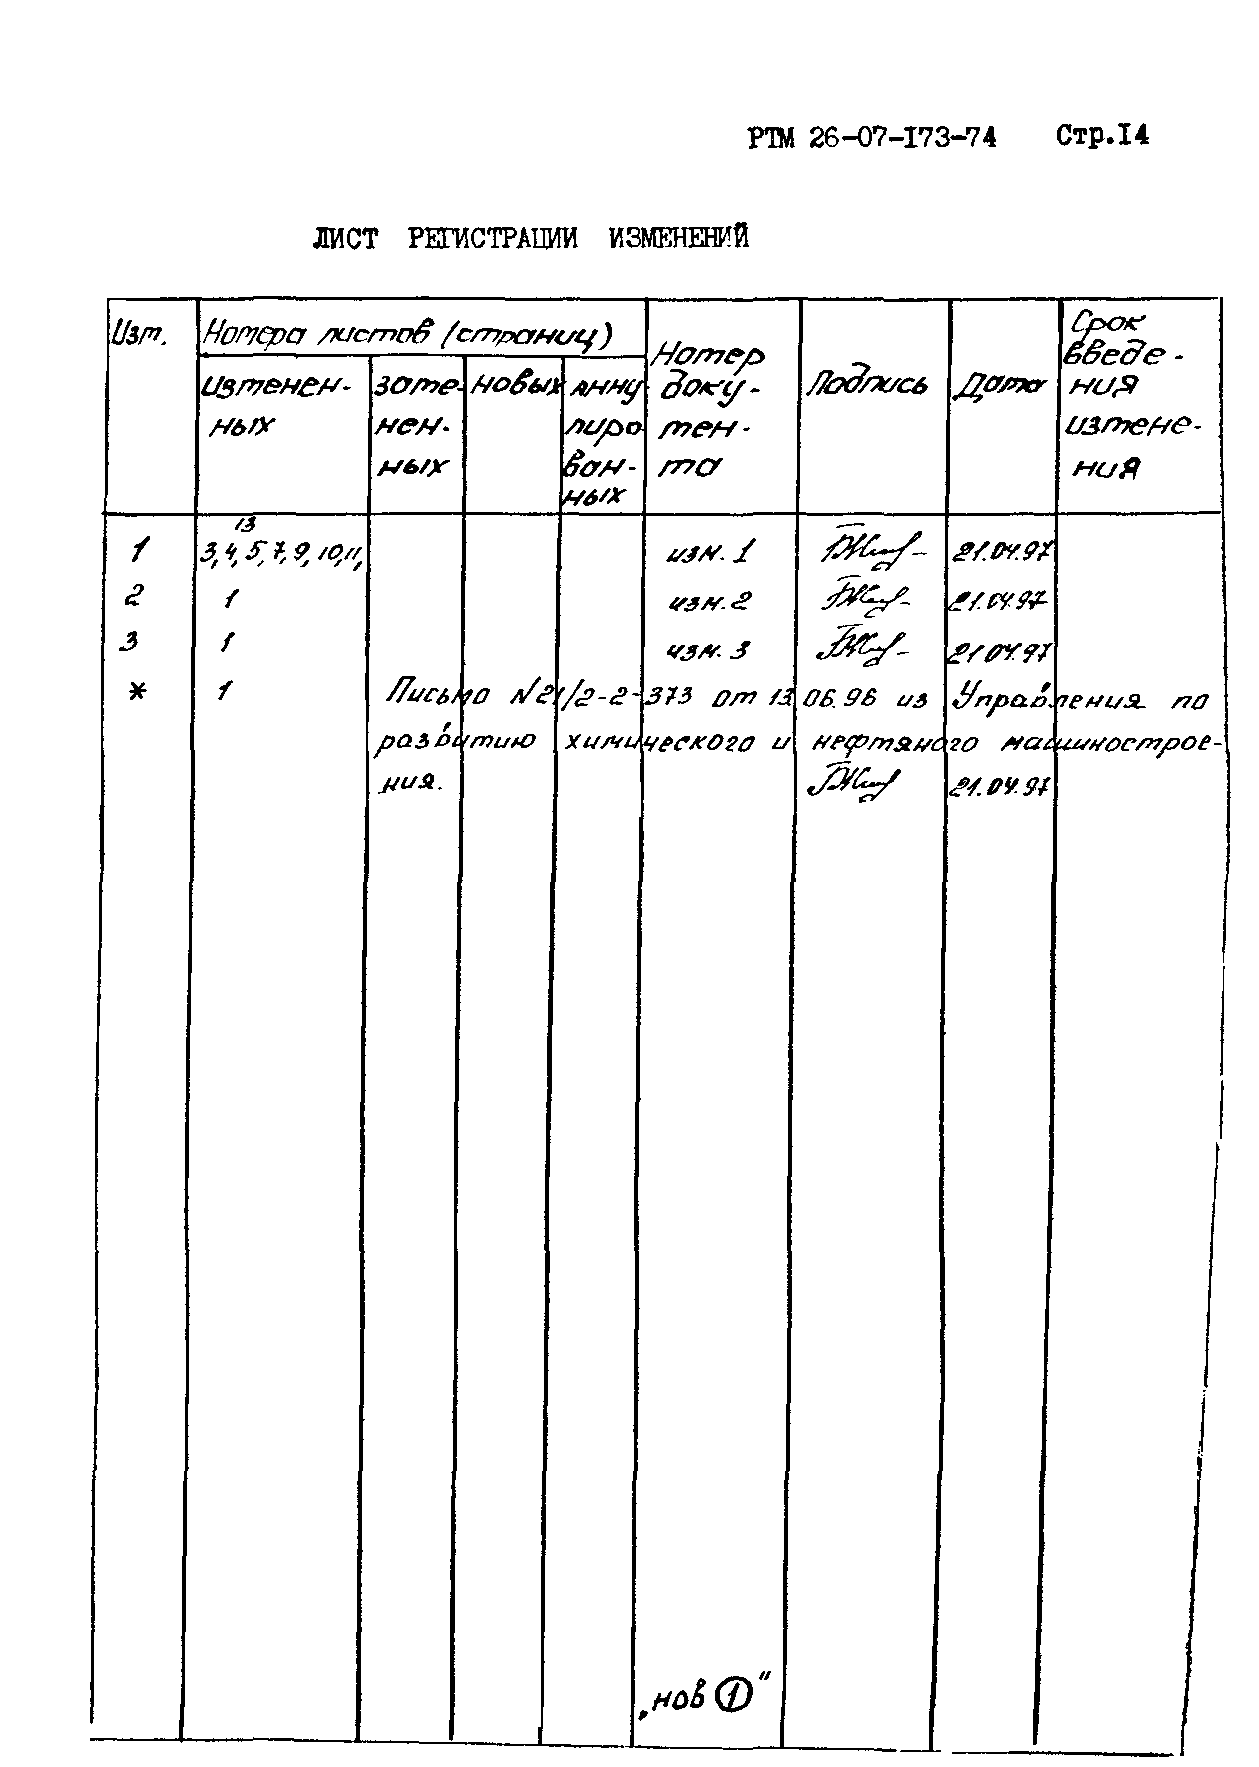 РТМ 26-07-I73-74 Стр.I4
ЛИСТ РЕГИСТРАЦИИ ИЗМЕНЕНИЙ
Изм.
Номера листов (страниц)
изменен-
ных
заме-
нен-
ных
новых
анну
лиро
ван-
ных
Номер
доку-
мен-
та
Подпись
Дата
Срок
введе-
ния
измене-
ния
13
1 3,4,5,7,9,10,11, изм. 1 21.04.97
2 1 изм. 2 21.04.97
3 1 изм. 3 21.04.97
* 1 Письмо №21/2-2-373 от 13 06.96 из Управления по
развитию химического и нефтяного машинострое-
ния. 21.04.97
„нов 1"